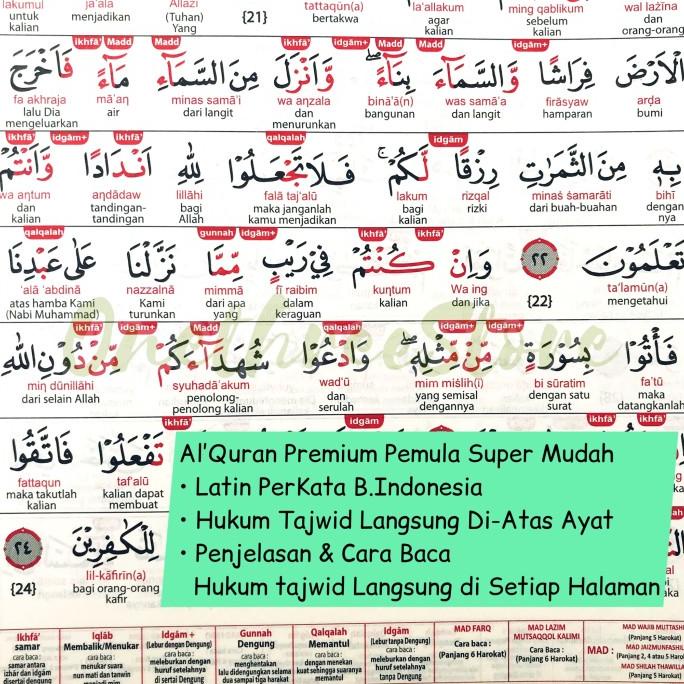 lakumul ja'ala Allażī tattaqūn(a) la'allakum ming qablikum wal lażīna
untuk kalian menjadikan (Tuhan) Yang {21} bertakwa agar kalian sebelum kalian dan orang-orang
ikhfā' Madd Madd ikhfā' idgām+ Madd Madd idgām+
الْاَرْضَ فِرَاشًا وَّالسَّمَاۤءَ بِنَاۤءً ۖ وَّاَنْزَلَ مِنَ السَّمَاۤءِ مَاۤءً فَاَخْرَجَ
fa akhraja mā'aṇ minas samā'i wa aṇzala binā'ā(n) was samā'a firāsyaw arḍa
lalu Dia mengeluarkan air dari langit dan menurunkan bangunan dan langit hamparan bumi
ikhfā' idgām+ ikhfā' qalqalah idgām
بِهٖ مِنَ الثَّمَرٰتِ رِزْقًا لَّكُمْ ۚ فَلَا تَجْعَلُوْا لِلّٰهِ اَنْدَادًا وَّاَنْتُمْ
wa aṇtum aṇdādaw lillāhi falā taj'alū lakum rizqal minaṡ ṡamarāti bihī
dan kalian tandingan-tandingan bagi Allah maka janganlah kamu menjadikan bagi kalian rizki dari buah-buahan dengan nya
qalqalah gunnah idgām+ ikhfā' ikhfā'
تَعْلَمُوْنَ ٢٢ وَاِنْ كُنْتُمْ فِيْ رَيْبٍ مِّمَّا نَزَّلْنَا عَلٰى عَبْدِنَا
'alā 'abdinā nazzalnā mimmā fī raibim kuṇtum Wa ing {22} ta'lamūn(a)
atas hamba Kami (Nabi Muhammad) Kami turunkan dari apa yang dalam keraguan kalian dan jika mengetahui
ikhfā' idgām+ Madd qalqalah idgām+ idgām+
فَأْتُوْا بِسُوْرَةٍ مِّنْ مِّثْلِهٖ ۖ وَادْعُوْا شُهَدَاۤءَكُمْ مِّنْ دُوْنِ اللّٰهِ
miṇ dūnillāhi syuhadā'akum wad'ū mim miṡlih(ī) bi sūratim fa'tū
dari selain Allah penolong-penolong kalian dan serulah yang semisal dengannya dengan satu surat maka datangkanlah
idgām ikhfā' ikhfā'
تَفْعَلُوْا فَاتَّقُوا
fattaqun taf'alū
maka takutlah kalian kalian dapat membuat
لِلْكٰفِرِيْنَ ٢٤
{24} lil-kāfirīn(a)
bagi orang-orang kafir
Al'Quran Premium Pemula Super Mudah
• Latin PerKata B.Indonesia
• Hukum Tajwid Langsung Di-Atas Ayat
• Penjelasan & Cara Baca
Hukum tajwid Langsung di Setiap Halaman
OnethreeStore
Ikhfā' samar cara baca : samar antara izhār dan idgām
Iqlāb Membalik/Menukar cara baca : menukar suara nun mati dan tanwin
Idgām + (Lebur dengan Dengung) cara baca : meleburkan dengan huruf setelahnya di sertai Dengung
Gunnah Dengung cara baca : menghentakan lalu didengungkan selama dua sampai tiga harakat
Qalqalah Memantul cara baca : dengan menekan kuat sehingga suaranya memantul
Idgām (Lebur tanpa Dengung) cara baca : meleburkan dengan huruf setelahnya tanpa Dengung
MAD FARQ Cara baca : (Panjang 6 Harokat)
MAD LAZIM MUTSAQQOL KALIMI Cara Baca : (Panjang 6 Harokat)
MAD : MAD WAJIB MUTTASHI (Panjang 5 Harokat)
MAD JAIZMUNFASHIL (Panjang 2, 4 atau 5 Harok
MAD SHILAH THAWILLA (Panjang 5 Harokat)